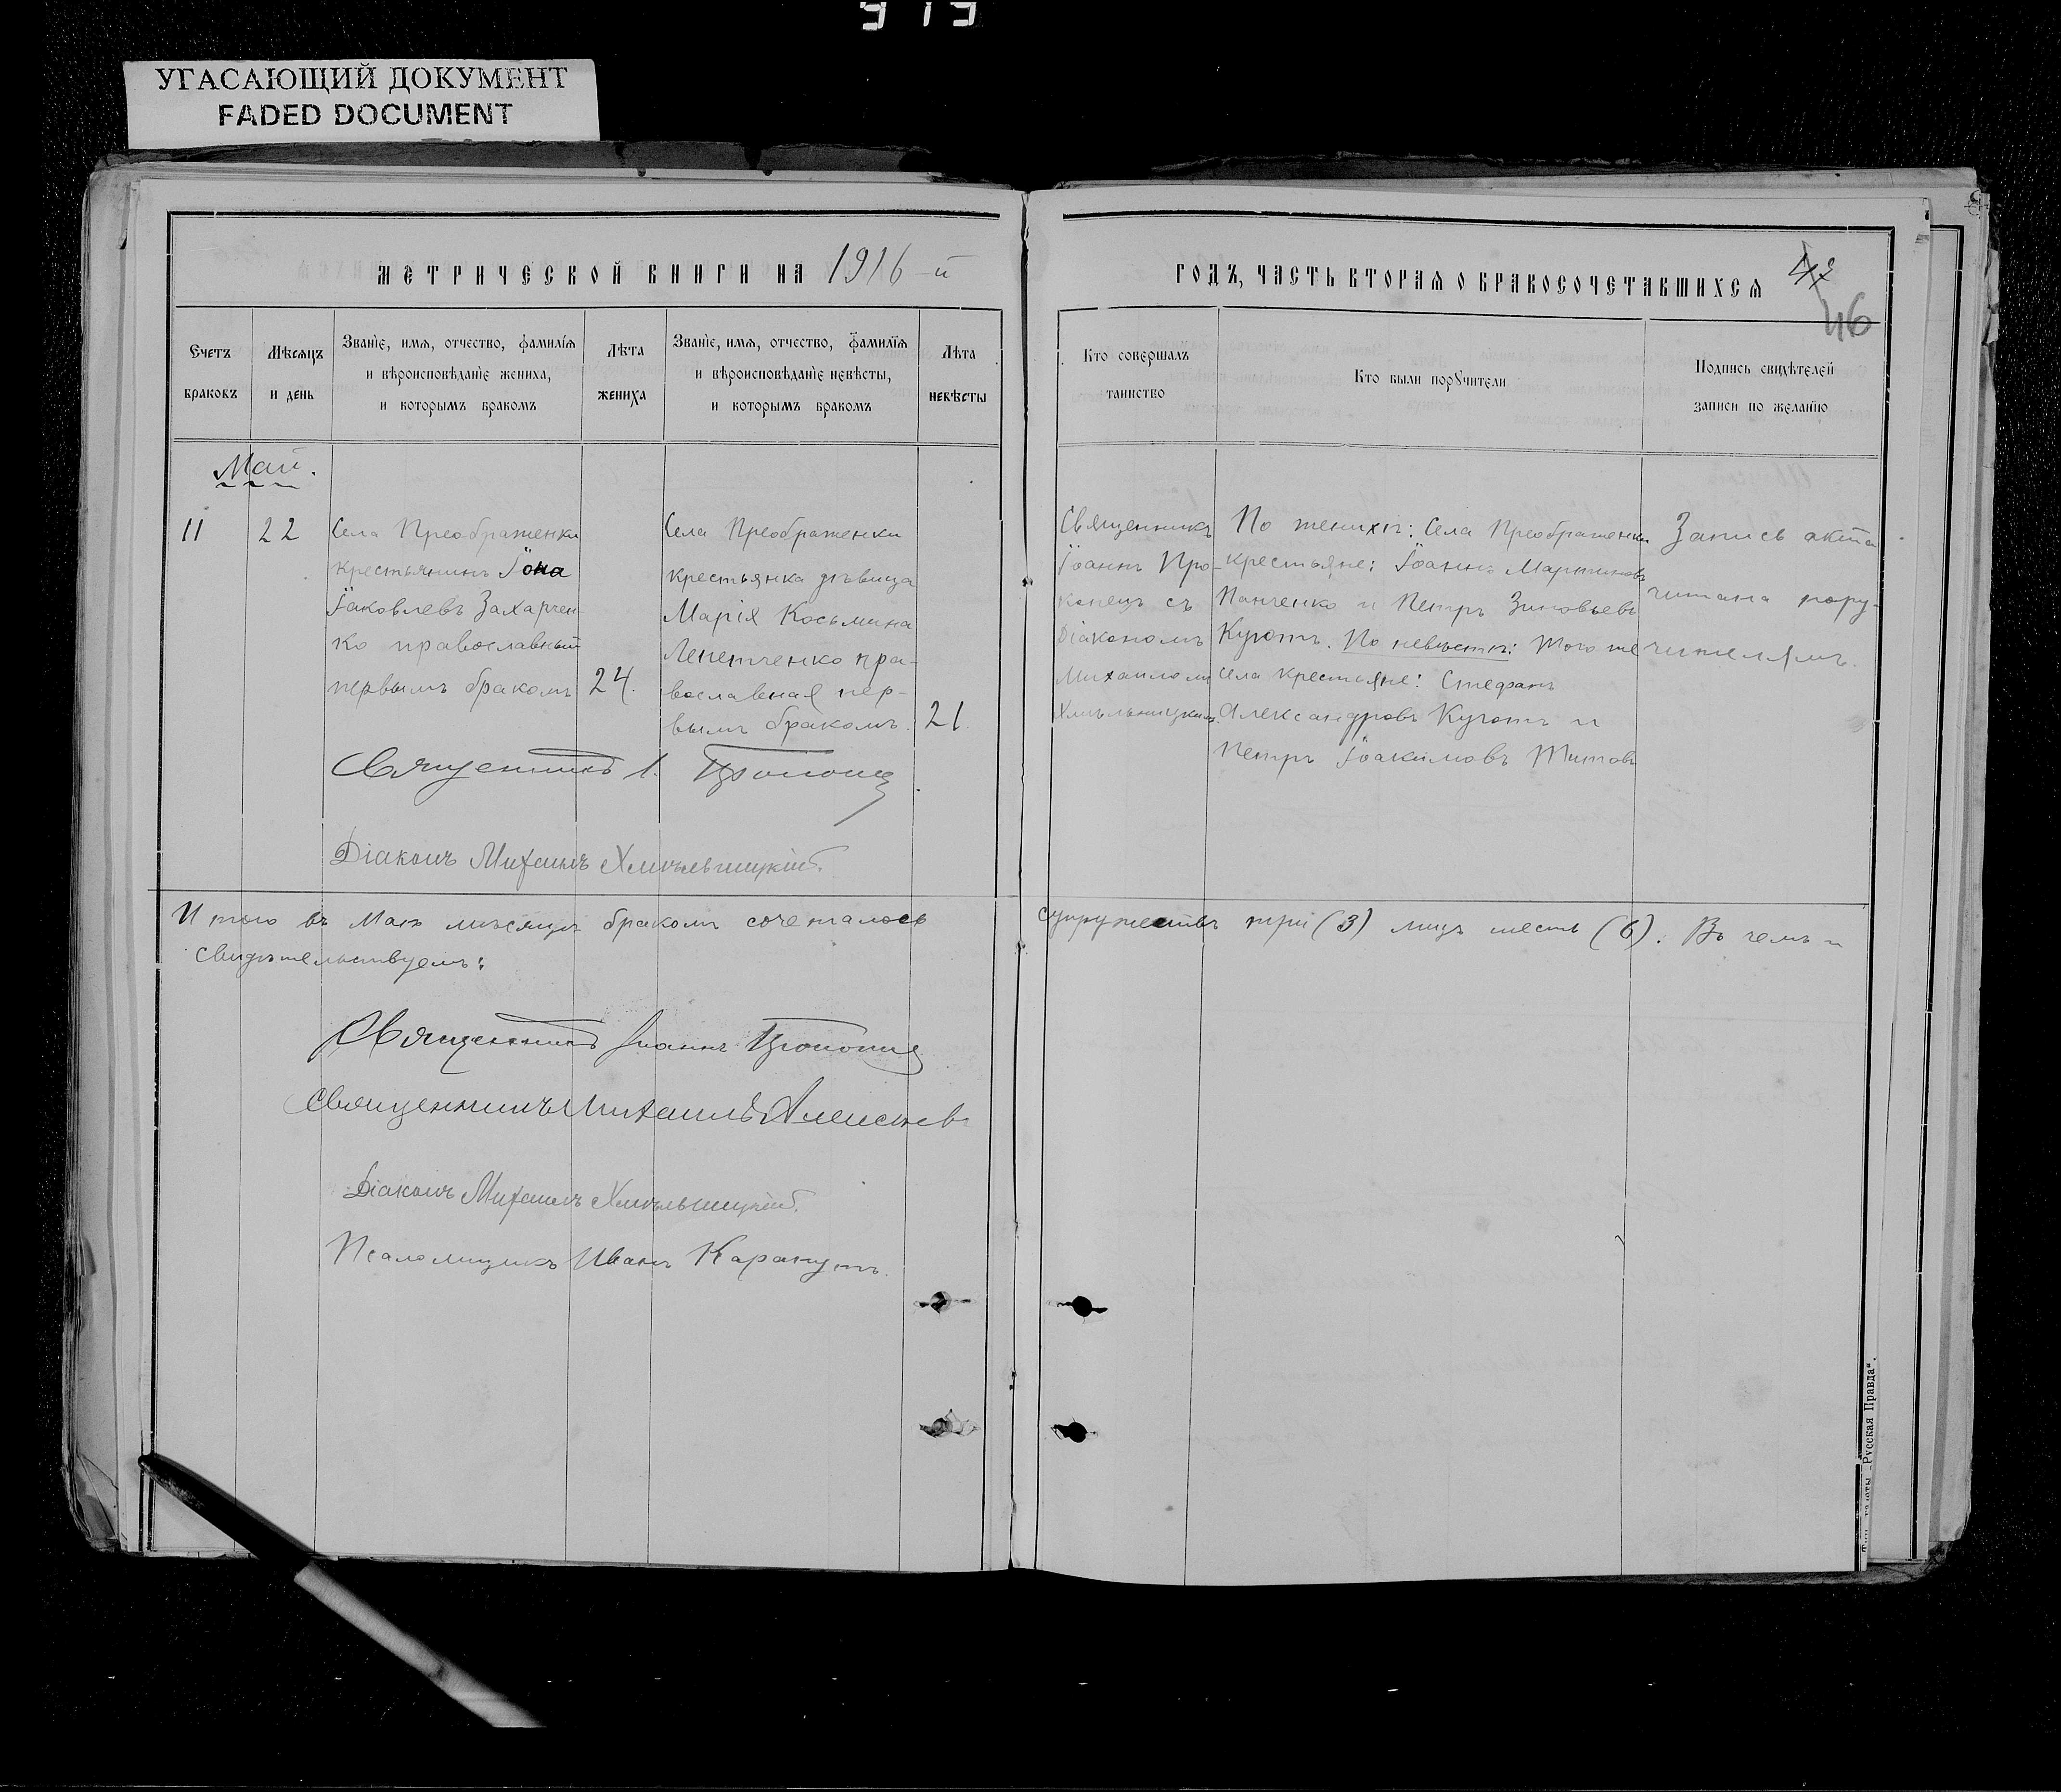 919
УГАСАЮЩИЙ ДОКУМЕНТ
FADED DOCUMENT
МЕТРИЧЕСКОЙ КНИГИ НА 1916-й
Счетъ браковъ
Мѣсяцъ и день
Званіе, имя, отчество, фамилія
и вѣроисповѣданіе жениха,
и которымъ бракомъ
Лѣта жениха
Званіе, имя, отчество, фамилія
и вѣроисповѣданіе невѣсты,
и которымъ бракомъ
Лѣта невѣсты
Май.
11
22
Села Преображенки
крестьянинъ Іона
Іаковлевъ Захарчен-
ко православный
первымъ бракомъ
24.
Села Преображенки
крестьянка дѣвица
Марія Косьмина
Лепетченко пра-
вославная пер-
вымъ бракомъ.
21
Священникъ І. Прокопец
Діаконъ Михаилъ Хмѣльницкій.
Итого въ Маѣ мѣсяцѣ бракомъ сочеталось
свидѣтельствуемъ:
Священникъ Іоаннъ Прокопец
Священникъ Михаилъ Алексѣев
Діаконъ Михаилъ Хмѣльницкій.
Псаломщикъ Иванъ Каракутъ.
ГОДЪ, ЧАСТЬ ВТОРАЯ О БРАКОСОЧЕТАВШИХСЯ
46
Кто совершалъ
таинство
Кто были порꙋчители
Подпись свидѣтелей
записи по желанію
Священникъ
Іоаннъ Про-
копецъ съ
діакономъ
Михаиломъ
Хмѣльницкимъ.
По женихѣ: Села Преображенки
крестьяне: Іоаннъ Мартиновъ
Панченко и Петръ Зиновьевъ
Куготъ. По невѣстѣ: Того же
села крестьяне: Стефанъ
Александровъ Куготъ и
Петръ Іоакимовъ Титовъ
Запись акта
читана пору-
чителямъ.
супружествъ три (3) лицъ шесть (6). Въ чемъ и
„Русская Правда“.